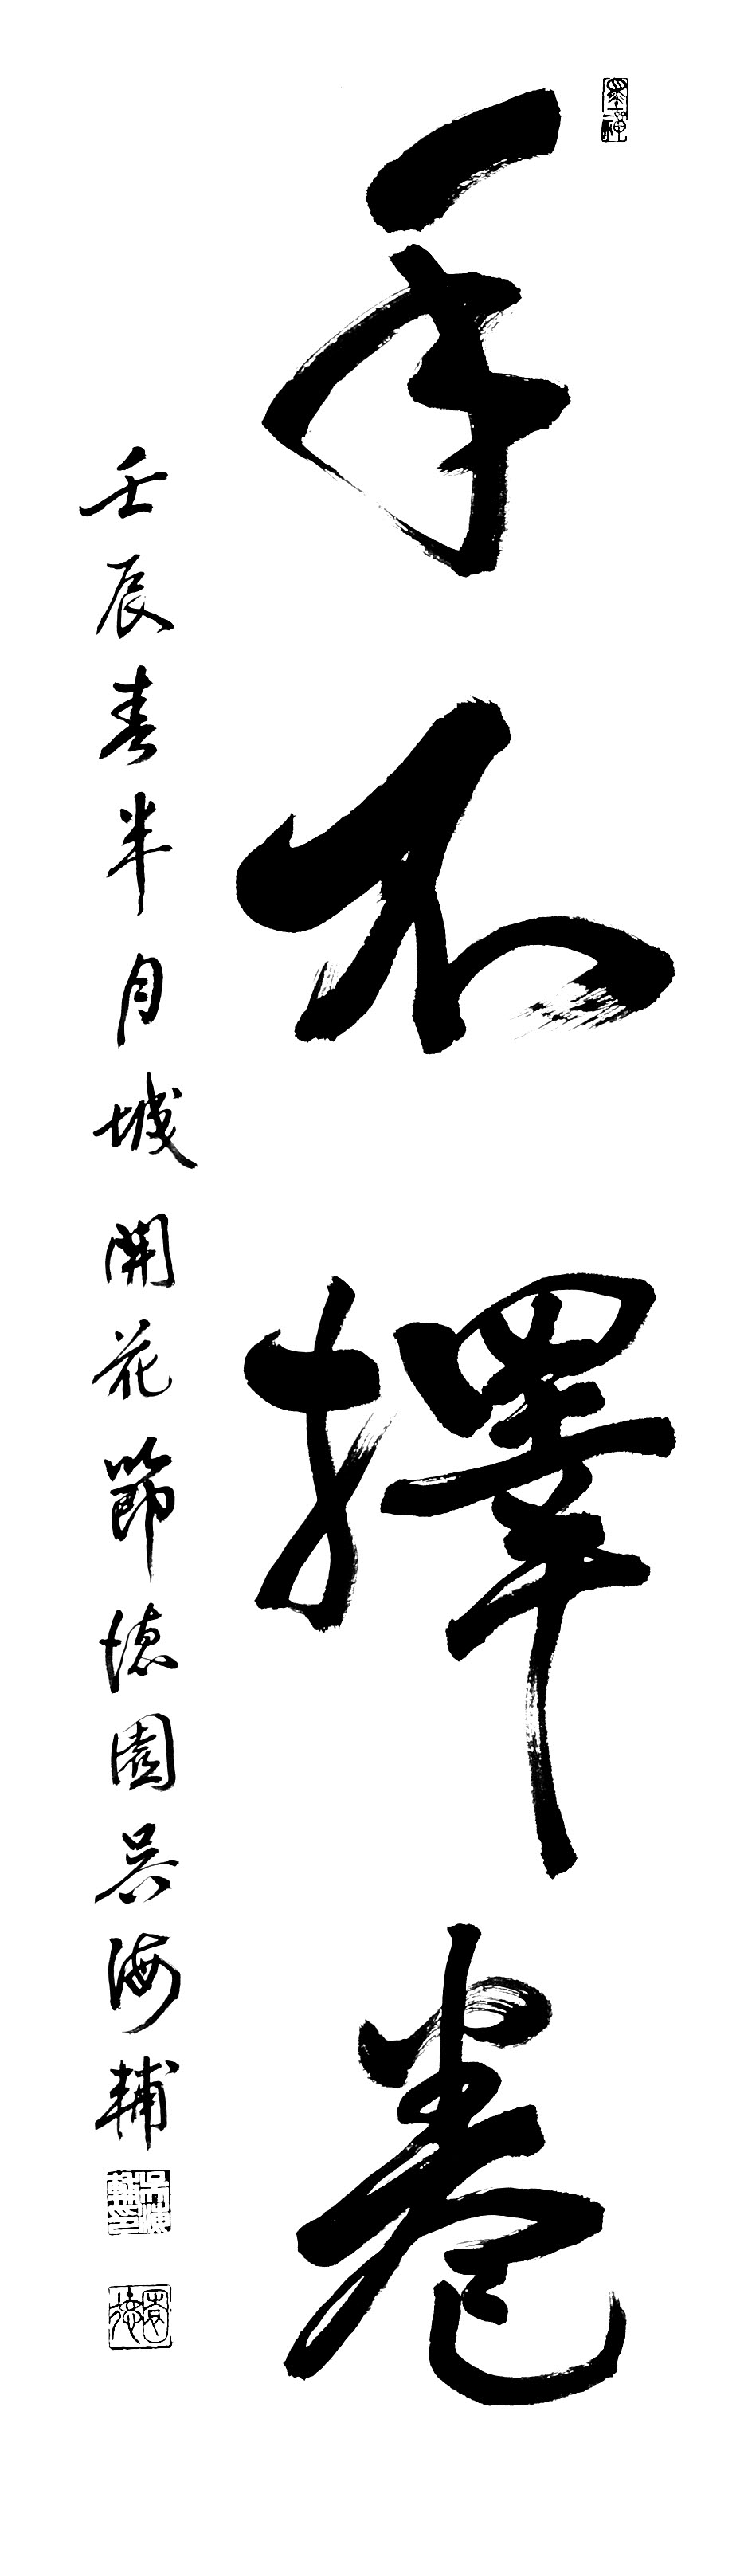 墨禪
手不擇卷
壬辰春半月城開花節德園吳海輔